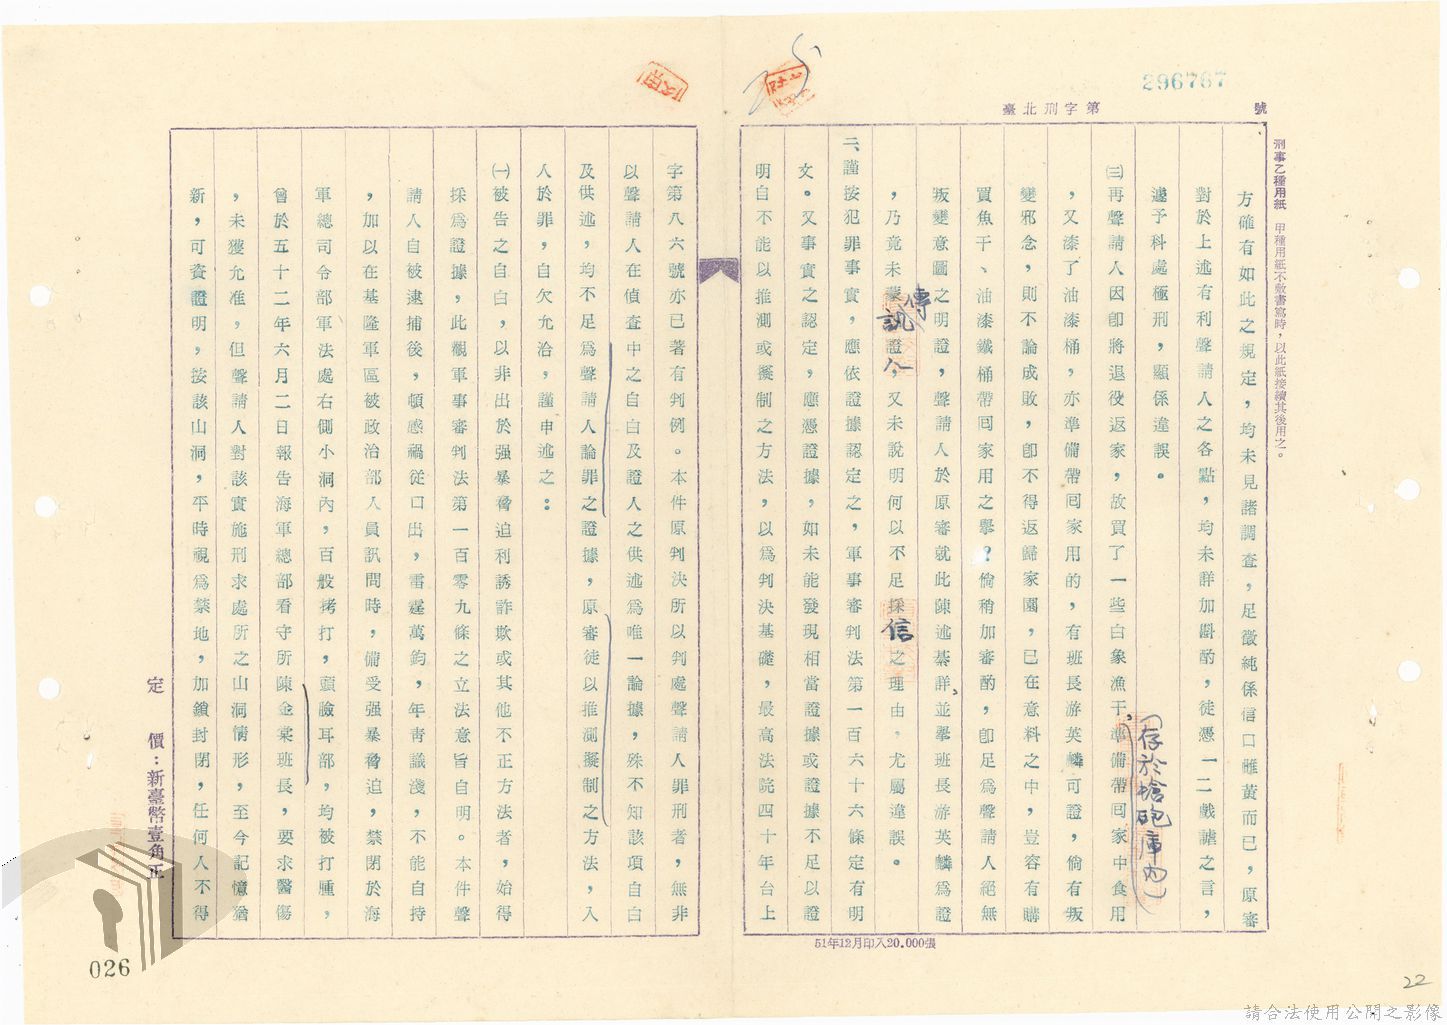 296767
臺北刑字第
號
刑事乙種用紙　甲種用紙不敷書寫時，以此紙接續其後用之。
方確有如此之規定，均未見諸調查，足徵純係信口雌黃而已，原審
對於上述有利聲請人之各點，均未詳加斟酌，徒憑一二戲謔之言，
遽予科處極刑，顯係違誤。
(三)再聲請人因卽將退役返家，故買了一些白象漁干，準備帶囘家中食用
（存於槍砲庫內）
，又漆了油漆桶，亦準備帶囘家用的，有班長游英麟可證，倘有叛
變邪念，則不論成敗，卽不得返歸家園，已在意料之中，豈容有購
買魚干、油漆鐵桶帶囘家用之擧？倘稍加審酌，卽足爲聲請人絕無
叛變意圖之明證，聲請人於原審就此陳述綦詳，並擧班長游英麟爲證
，乃竟未蒙傳訊證人，又未說明何以不足採信之理由，尤屬違誤。
二、謹按犯罪事實，應依證據認定之，軍事審判法第一百六十六條定有明
文。又事實之認定，應憑證據，如未能發現相當證據或證據不足以證
明自不能以推測或擬制之方法，以爲判決基礎，最高法院四十年台上
字第八六號亦已著有判例。本件原判決所以判處聲請人罪刑者，無非
以聲請人在偵查中之自白及證人之供述爲唯一論據，殊不知該項自白
及供述，均不足爲聲請人論罪之證據，原審徒以推測擬制之方法，入
人於罪，自欠允洽，謹申述之：
(一)被告之自白，以非出於强暴脅迫利誘詐欺或其他不正方法者，始得
採爲證據，此觀軍事審判法第一百零九條之立法意旨自明。本件聲
請人自被逮捕後，頓感禍從口出，雷霆萬鈞，年青識淺，不能自持
，加以在基隆軍區被政治部人員訊問時，備受强暴脅迫，禁閉於海
軍總司令部軍法處右側小洞內，百般拷打，頭臉耳部，均被打腫，
曾於五十二年六月二日報告海軍總部看守所陳金棠班長，要求醫傷
，未獲允准，但聲請人對該實施刑求處所之山洞情形，至今記憶猶
新，可資證明，按該山洞，平時視爲禁地，加鎖封閉，任何人不得
定　價：新臺幣壹角正
51年12月印入20.000張
026
22
請合法使用公開之影像